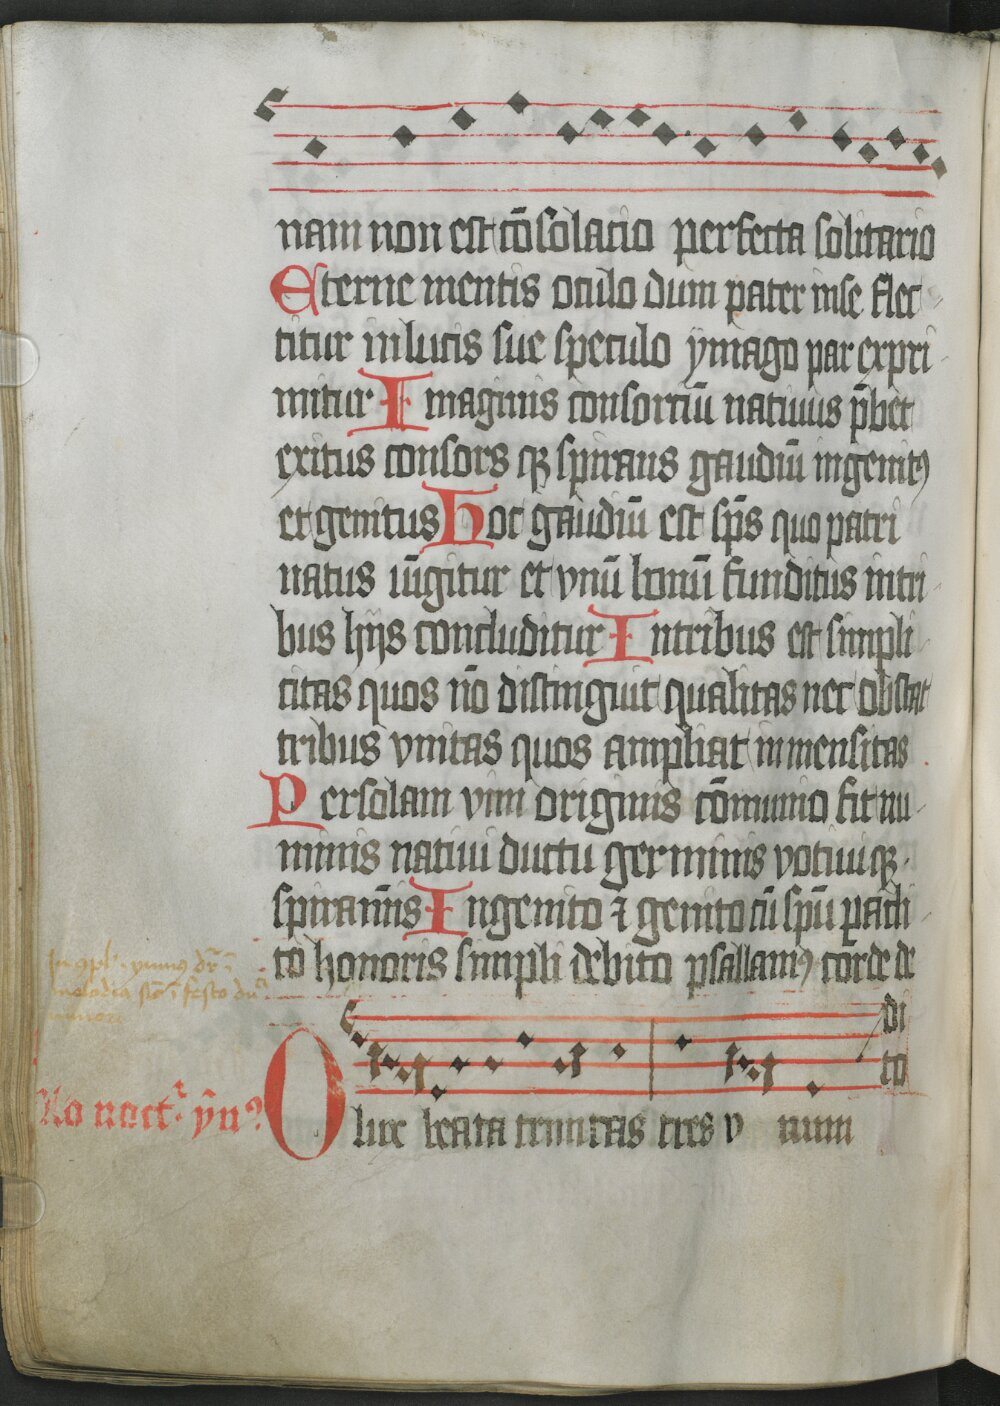 nam non est cōsolatio perfecta solitario
Eterne mentis oculo dum pater inse flec
titur inlucis sue speculo ymago par expri
mitur Imaginis consortiū natiuus p̄bet
exitus consors qꝫ spirans gaudiū ingenitꝰ
et genitus Hoc gaudiū est sp̄s quo patri
natus iūgitur et vnū bonū funditus intri
bus hijs concluditur Intribus est simpli
citas quos nō distinguit qualitas nec obstat
tribus vnitas quos ampliat inmensitas
Persolam vim originis cōmunio fit nu
minis natiui ductu germinis votiuiqꝫ
spiraminis Ingenito ⁊ genito cū spū pacli
to honoris simpli debito psallamꝰ corde de
di
to
Ad noctᷓ. ẏn?
O lux beata trinitas tres v num